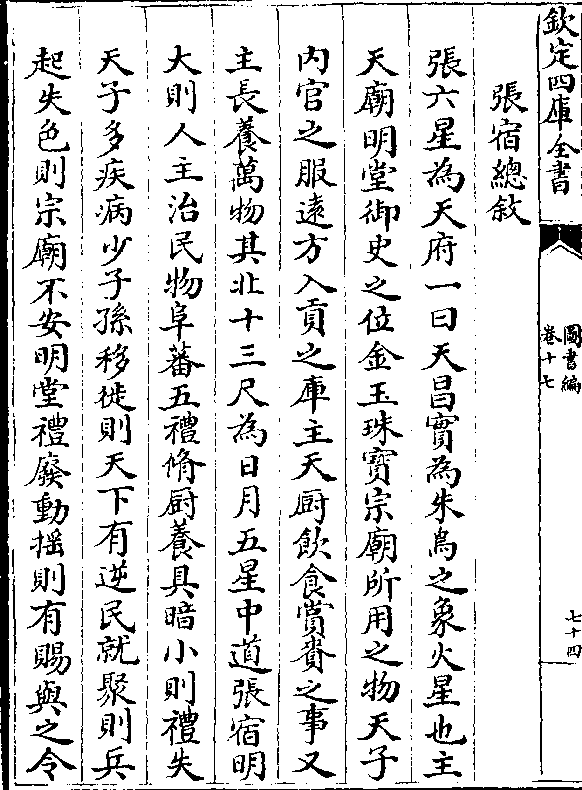 欽定四庫全書
圖書編
卷十七
七十四
張宿總敘
張六星為天府一曰天昌實為朱鳥之象火星也主
天廟明堂御史之位金玉珠寶宗廟所用之物天子
内官之服遠方入貢之庫主天厨飲食賞賚之事又
主長養萬物其北十三尺為日月五星中道張宿明
大則人主治民物阜蕃五禮脩厨養具暗小則禮失
天子多疾病少子孫移徙則天下有逆民就聚則兵
起失色則宗廟不安明堂禮廢動揺則有賜與之令